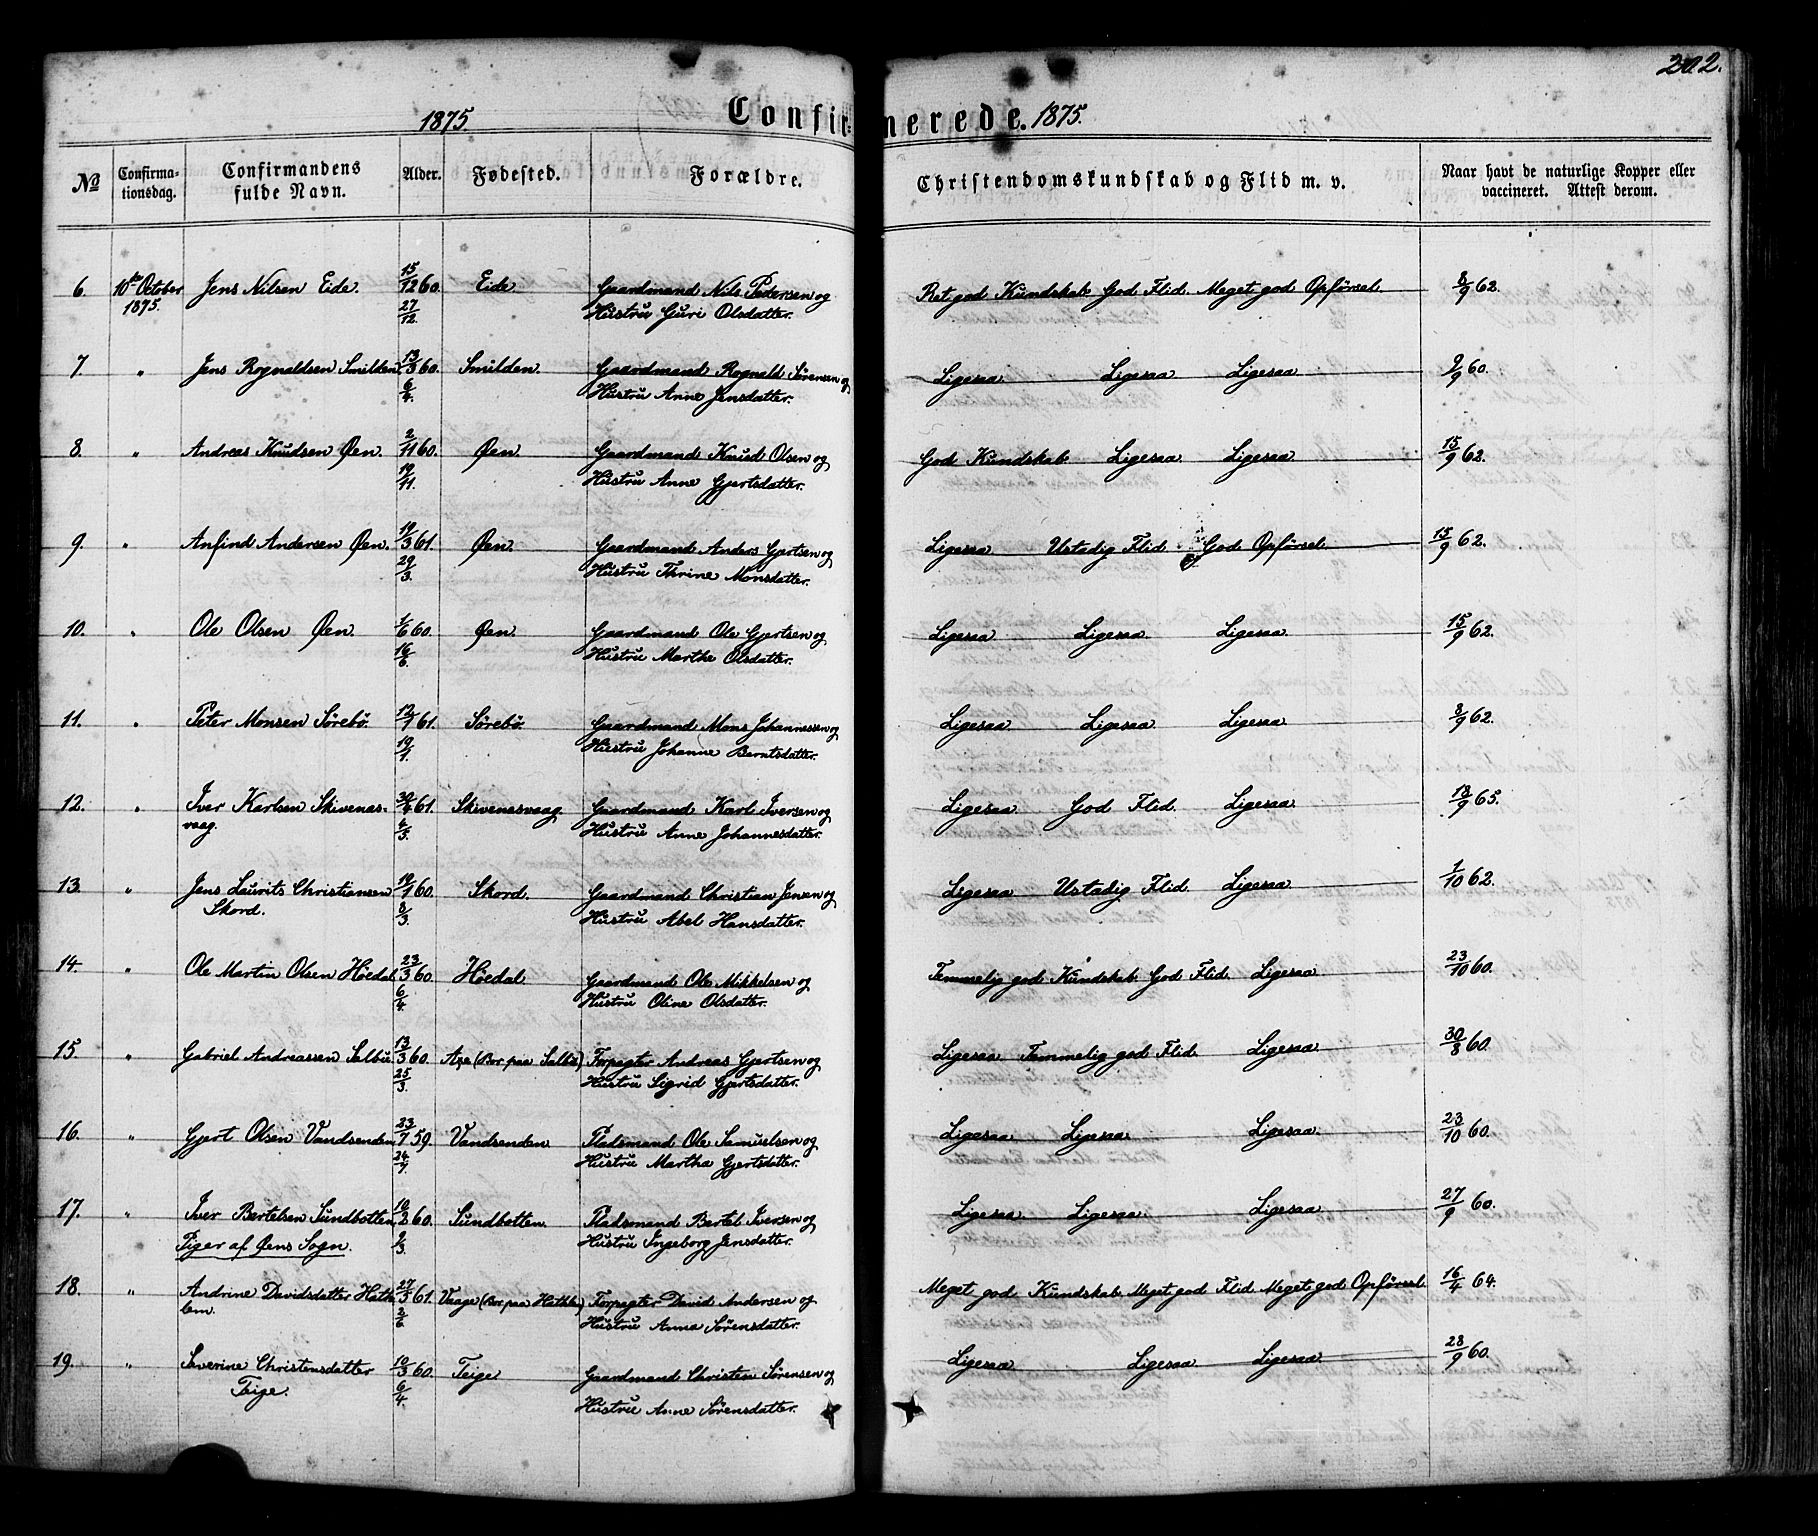 202.
1875. Confirmerede. 1875.
No Confirmationsdag. Confirmandens fulde Navn. Alder. Fødested. Forældre. Christendomskundskab og Flid m. v. Naar havt de naturlige Kopper eller vaccineret. Attest derom.
6. 10de October Jens Nilsen Eide. 15/12 60. Eide Gaardmand Nils Pedersen og Ret god Kundskab God Flid. Meget god Opførsel. 8/9 62.
1875. 27/12. Hustru Guri Olsdatter.
7. " Jens Rognaldsen Smilden. 13/3 60. Smilden. Gaardmand Rognald Sørensen og Ligesaa Ligesaa Ligesaa 9/9 60.
6/4. Hustru Anne Jensdatter.
8. " Andreas Knudsen Øen. 2/11 60. Øen Gaardmand Knud Olsen og God Kundskab Ligesaa. Ligesaa. 15/9 62.
19/11. Hustru Anne Gjertsdatter.
9. " Anfind Andersen Øen. 19/3 61. Øen. Gaardmand Anders Gjertsen og Ligesaa Ustadig Flid. God Opførsel 15/9 62.
29/3. Hustru Thrine Monsdatter.
10. " Ole Olsen Øen. 1/6 60. Øen. Gaardmand Ole Gjertsen og Ligesaa Ligesaa. Ligesaa. 15/9 62.
16/6. Hustru Marthe Olsdatter.
11. " Peter Monsen Sørebø. 12/1 61. Sørebø. Gaardmand Mons Johannessen og Ligesaa Ligesaa Ligesaa 8/9 62.
19/1. Hustru Johanne Berntsdatter.
12. " Iver Karlsen Skivenes- 30/4 61. Skivenesvaag. Gaardmand Karl Iversen og Ligesaa God Flid. Ligesaa. 18/9 65.
vaag. 4/5. Hustru Anne Johannesdatter.
13. " Jens Laurits Christiansen 19/1 60. Skord. Gaardmand Christian Jensen og Ligesaa Ustadig Flid. Ligesaa. 1/10 62.
Skord. 8/3. Hustru Abel Hansdatter.
14. " Ole Martin Olsen Høedal 23/3 60. Høedal Gaardmand Ole Mikkelsen og Temmelig god Kundskab God Flid. Ligesaa 23/10 60.
6/4. Hustru Oline Olsdatter.
15. " Gabriel Andreassen Salbu 13/3 60. Aze (Bor paa Salbu) Forpagter Andreas Gjertsen og Ligesaa Temmelig god Flid. Ligesaa. 30/8 60.
25/3. Hustru Sigrid Gjertsdatter.
16. " Gjert Olsen Vandsenden 23/7 59. Vandsenden Pladsmand Ole Samuelsen og Ligesaa Ligesaa Ligesaa. 23/10 60.
24/7. Hustru Martha Gjertsdatter.
17. " Iver Bertelsen Sundbotten 10/2 60. Sundbotten. Pladsmand Bertel Iversen og Ligesaa. Ligesaa. Ligesaa. 27/9 60.
Piger af Øens Sogn. 9/3. Hustru Ingeborg Jensdatter.
18. " Andrine Davidsdatter Hath- 27/5 61. Vaage (Bor paa Hathle) Forpagter David Andersen og Meget god Kundskab Meget god Flid Meget god Opførsel 16/4 64.
lem. 2/6. Hustru Anna Sørensdatter.
19. " Severine Christensdatter 10/3 60. Teige Gaardmand Christen Sørensen og Ligesaa Ligesaa Ligesaa. 28/9 60.
Teige. 6/4. Hustru Anne Sørensdatter.